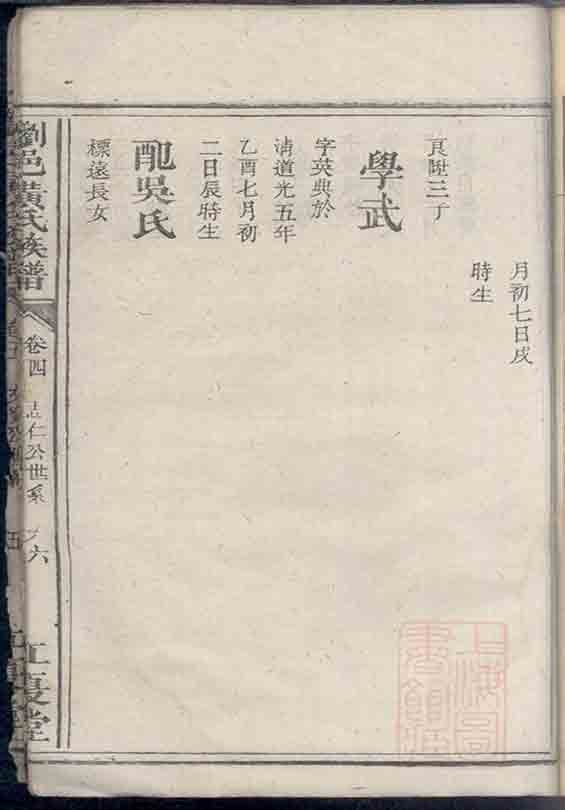 月初七日戌
時生
良陞三子
學武
字英典於
清道光五年
乙酉七月初
二日辰時生
配吳氏
標遠長女
劉邑黃氏族譜
卷四
志仁公世系
六
江夏堂
上海圖
書館藏